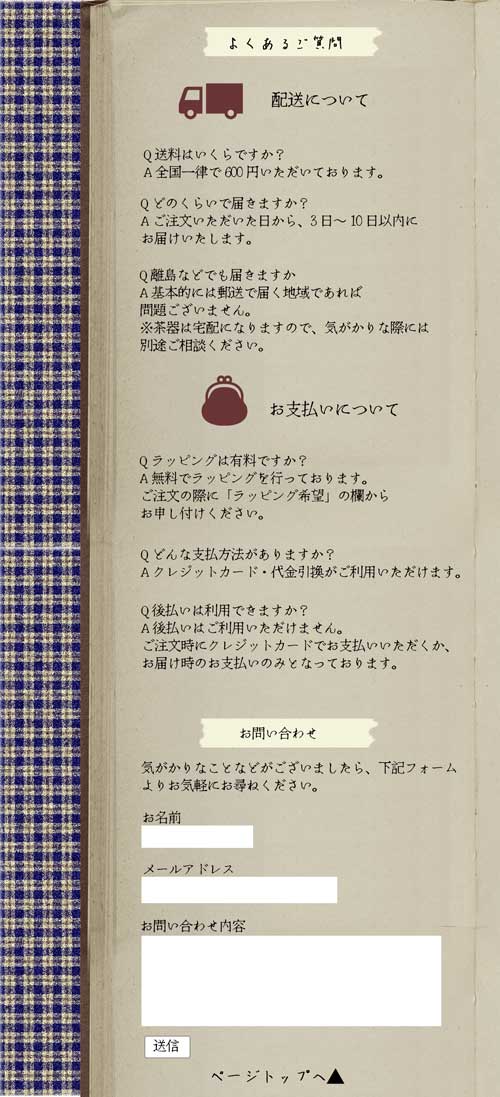 よくあるご質問
配送について
Q送料はいくらですか？
A全国一律で600円いただいております。
Qどのくらいで届きますか？
Aご注文いただいた日から、3日～10日以内に
お届けいたします。
Q離島などでも届きますか
A基本的には郵送で届く地域であれば
問題ございません。
※茶器は宅配になりますので、気がかりな際には
別途ご相談ください。
お支払いについて
Qラッピングは有料ですか？
A無料でラッピングを行っております。
ご注文の際に「ラッピング希望」の欄から
お申し付けください。
Qどんな支払方法がありますか？
Aクレジットカード・代金引換がご利用いただけます。
Q後払いは利用できますか？
A後払いはご利用いただけません。
ご注文時にクレジットカードでお支払いいただくか、
お届け時のお支払いのみとなっております。
お問い合わせ
気がかりなことなどがございましたら、下記フォーム
よりお気軽にお尋ねください。
お名前
メールアドレス
お問い合わせ内容
送信
ページトップへ▲